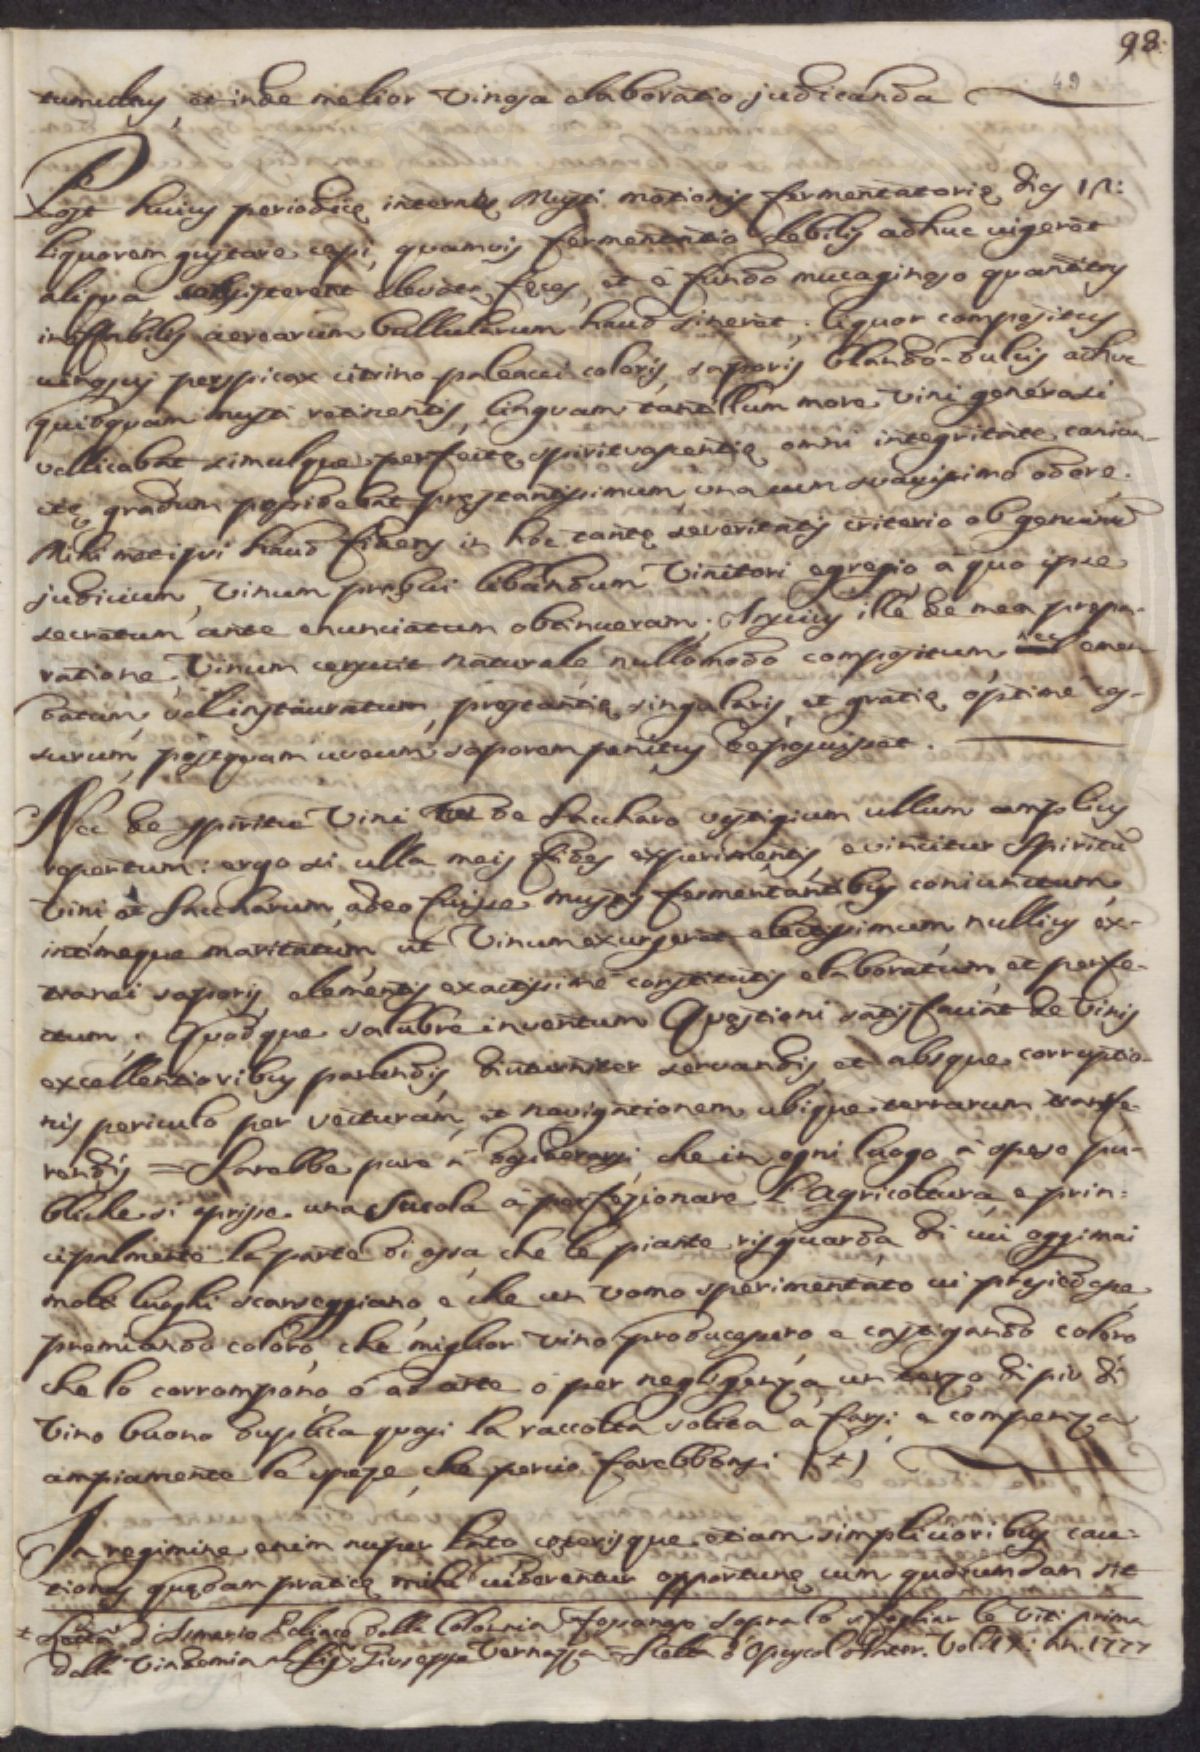 98.
49
et inde melior Vinosa elaboratio judicanda
Post huius periodicę internęq Musti motionis fermentatorię dies 15:
liquorem gustare cepi, quamvis fermentatio debilis adhuc vigeret
aliqua subsisterent fęces, et è fundo mucaginoso quantitas
aerearum bullularum haud sineret; liquor compositus
vinosus perspicax citrino-paleacei coloris, saporis blando-dulcis adhuc
quidquam musti retinentis, linguam tantillum more Vini generosi
vellicabat simulque perfectę omni integritate
gradum possidebat pręstantissimum, una cum suavissimo odore.
Mihi metipsi haud fidens in hoc tantę severitatis criterio ob genuinum
judicium, Vinum prębui libandum Vinitori egregio, a quo ipse
secretum ante enunciatum obtinueram; Inscius ille de mea prepa-
ratione, Vinum censuit naturale nullomodo compositum, nec emen-
datum, vel instauratum, pręstantię singularis, et gratię optimę ces-
surum, postquam uveum saporem penitus deposuisset.
Nec de spiritu Vini nec de Saccharo vestigium ullum amplius
repertum: ergo si ulla meis fides experimentis evincitur Spiritum
Vini et Saccharum adeo fuisse mustis fermentantibus coniunctum
intimeque maritatum, ut Vinum exurgeret electissimum nullius ex-
tranei saporis, elementis exactissime constitutis elaboratum, et perfe-
ctum. Quodque salubre inventum Quęstioni satisfaciat de Vinis
excellentioribus parandis, diuturniter servandis, et absque corruptio-
nis periculo per vecturam, et navigationem ubique terrarum transfe-
rendis = Sarebbe pure à desiderarsi che in ogni luogo à spese pu-
bliche si aprisse una Scuola à perfezionare l'Agricoltura e prin-
cipalmente la parte di essa, che le piante risguarda, di cui oggimai
molti luoghi scarseggiano, e che un Uomo sperimentato vi presiedesse,
premiando coloro, che miglior vino producessero e castigando coloro
che lo corrompono, ò ad arte ò per negligenza, un terzo di più di
Vino buono duplica quasi la raccolta solita à farsi, e compenza
ampiamente le spese, che perciò farebbonsi (+)
In regimine enim nuper dicto cęterisque etiam simplicioribus cau-
tiones quędam praticę mihi viderentur opportunę cum quibusdam sit
+ di della Colonia Fossanese sopra lo sfogliar le Viti prima
della Vindemia al Sig: Giuseppe Vernazza = Scelta d'Opuscol. Inter. Vol. IX: An. 1777